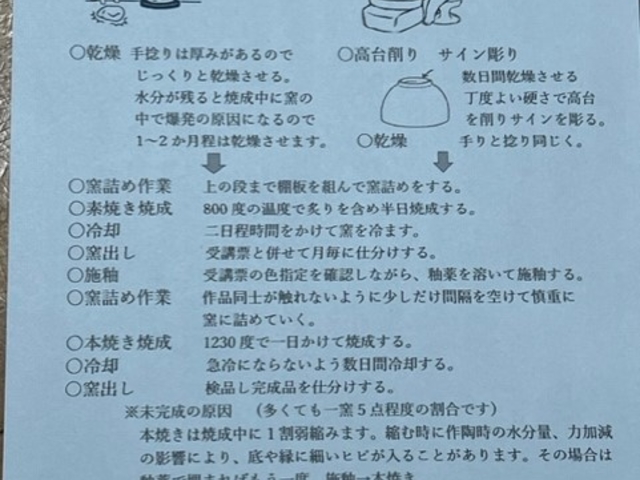 ○乾燥 手捻りは厚みがあるので
じっくりと乾燥させる。
水分が残ると焼成中に窯の
中で爆発の原因になるので
1～2か月程は乾燥させます。
○高台削り サイン彫り
数日間乾燥させる
丁度よい硬さで高台
を削りサインを彫る。
○乾燥 手りと捻り同じく。
○窯詰め作業 上の段まで棚板を組んで窯詰めをする。
○素焼き焼成 800度の温度で炙りを含め半日焼成する。
○冷却 二日程時間をかけて窯を冷ます。
○窯出し 受講票と併せて月毎に仕分けする。
○施釉 受講票の色指定を確認しながら、釉薬を溶いて施釉する。
○窯詰め作業 作品同士が触れないように少しだけ間隔を空けて慎重に
窯に詰めていく。
○本焼き焼成 1230度で一日かけて焼成する。
○冷却 急冷にならないよう数日間冷却する。
○窯出し 検品し完成品を仕分けする。
※未完成の原因 （多くても一窯5点程度の割合です）
本焼きは焼成中に1割弱縮みます。縮む時に作陶時の水分量、力加減
の影響により、底や縁に細いヒビが入ることがあります。その場合は
釉薬で埋まればもう一度、施釉→本焼き